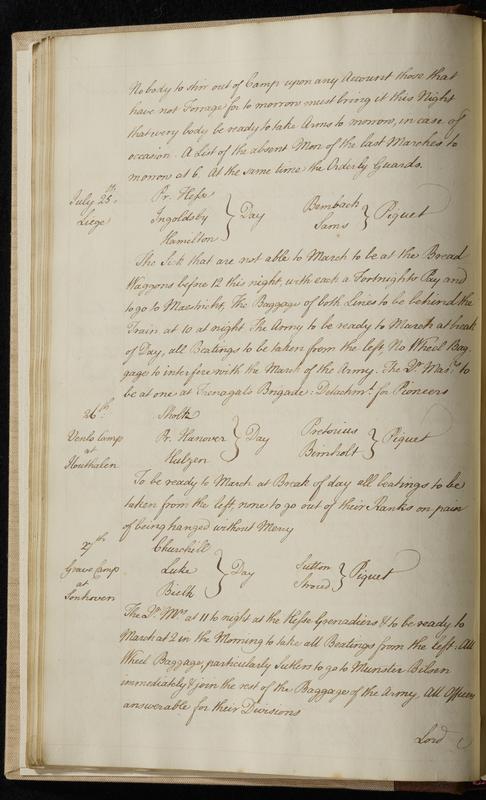 No body to stirr out of Camp upon any Account those that
have not Forrage for to morrow must bring it this Night
that every body be ready to take Arms to morrow, in case of
occasion. A List of the absent Men of the last Marches to
morrow at 6. At the same time the Orderly Guards.
July 25th. Pr. Hesse
Liege Ingoldsby } Day Bembach } Piquet
Hamilton Sams
The Sick that are not able to March to be at the Bread
Waggons before 12 this night, with each a Fortnights Pay and
to go to Maestricht, The Baggage of both Lines to be behind the
Train at 10 at night The Army to be ready to March at break
of Day, all Beatings to be taken from the left, No Wheel Bag-
gage to interfere with the March of the Army. The Qr. Mas.rs to
be at one at Frenagals Brigade: Detachmt. for Pioneers
26th. Sholk
Venlo Camp Pr. Hanover } Day Pretorius } Piquet
at Hulzen Bernholt
Houthalen
To be ready to March at Break of day all beatings to be
taken from the left, none to go out of their Ranks on pain
of being hanged without Mercy
27th Churchill
Grave Camp Luke } Day Sutton } Piquet
at Bielk Stroud
Sonhoven
The Qr. Mrs. at 11 to night at the Hesse Grenadiers & to be ready to
March at 2 in the Morning to take all Beatings from the left: All
Wheel Baggage, particularly Sutlers to go to Munster Bilsen
immediately & join the rest of the Baggage of the Army. All Officers
answerable for their Divisions
Lord